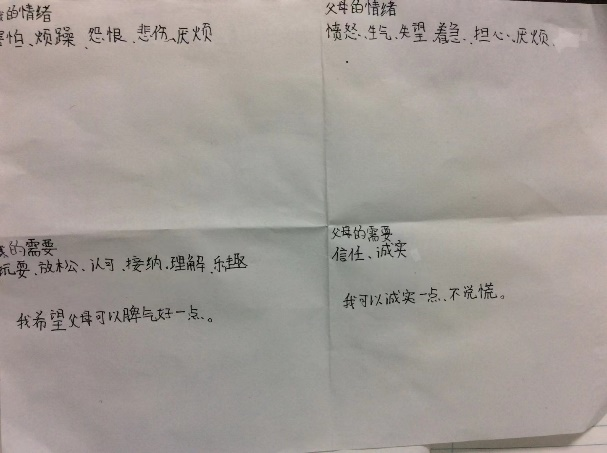 的情绪
怕、烦躁、怨恨、悲伤、厌烦
父母的情绪
愤怒、生气、失望、着急、担心、厌烦
的需要
玩耍、放松、认可、接纳、理解、乐趣
我希望父母可以脾气好一点。
父母的需要
信任、诚实
我可以诚实一点、不说慌。